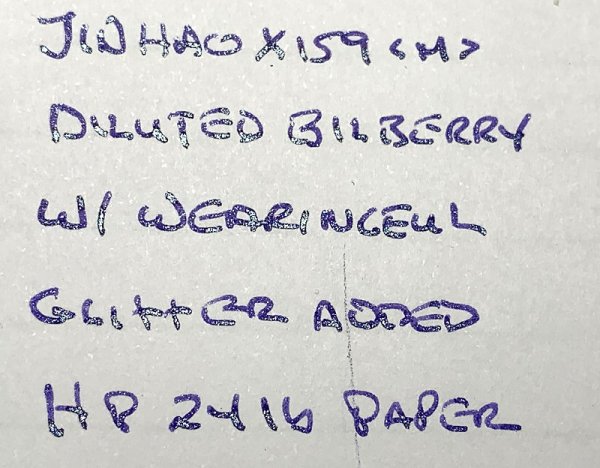 JINHAO X159 <M>
DILUTED BILBERRY
W/ WEARINGEUL
GLITTER ADDED
HP 24 lb PAPER